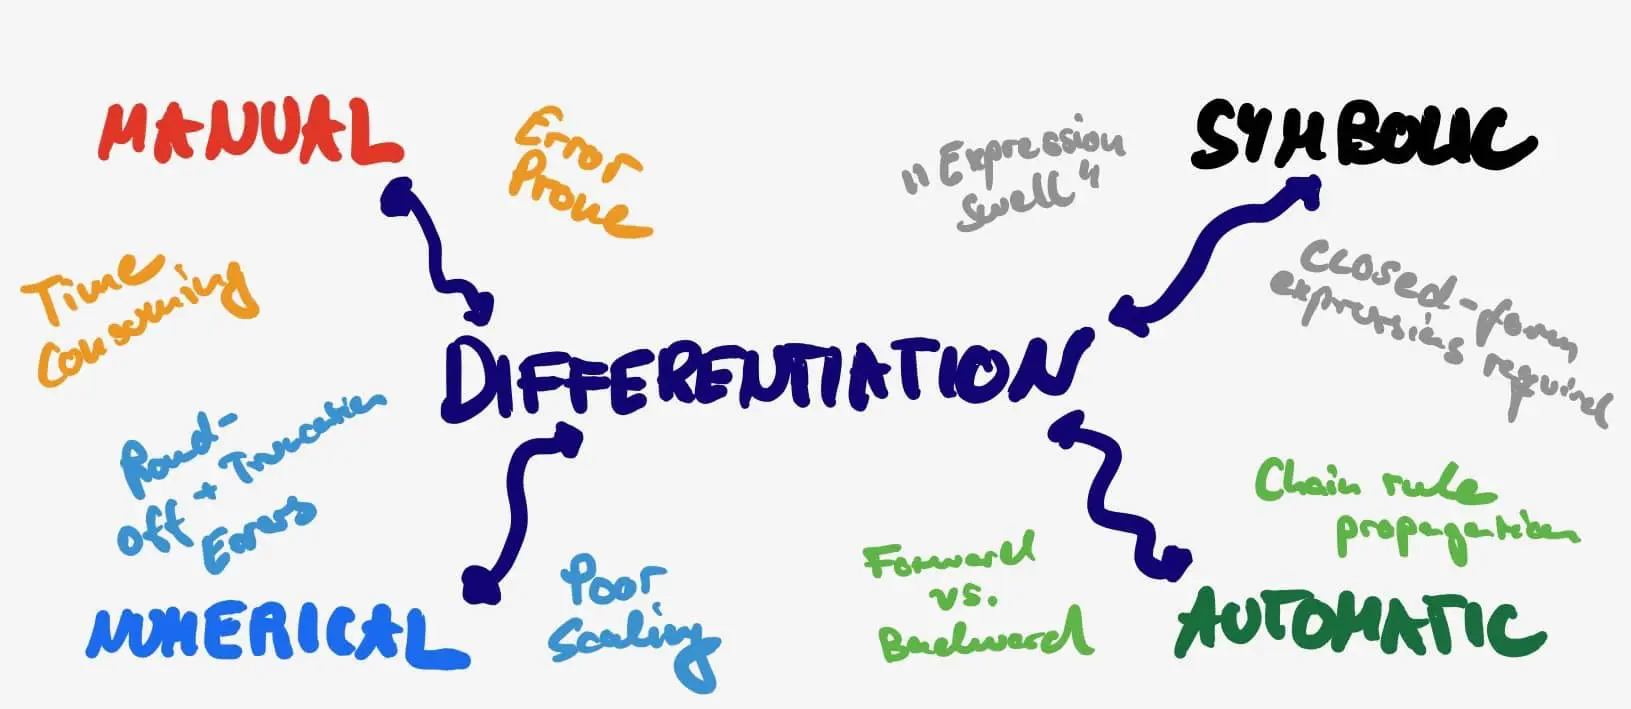 MANUAL
Error
Prone
Time
Consuming
"Expression
Swell"
SYMBOLIC
CLOSED-form
expressions required
DIFFERENTIATION
Round-
off + Truncation
Errors
NUMERICAL
Poor
Scaling
Forward
vs.
Backward
Chain rule
propagation
AUTOMATIC